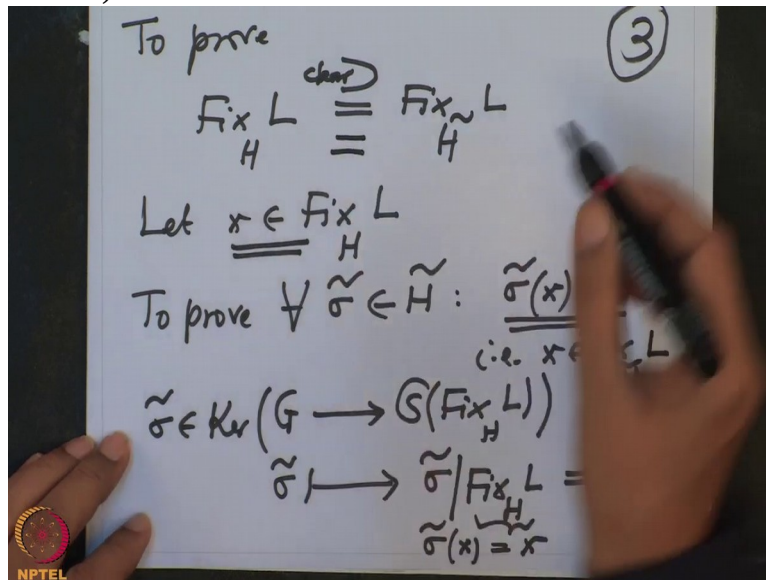 To prove
③
clear
Fix_H L = Fix_H̃ L
Let x ∈ Fix_H L
To prove ∀ σ̃ ∈ H̃ : σ̃(x)
i.e. x ∈ L
σ̃ ∈ Ker(G ⟶ 𝔖(Fix_H L))
σ̃ ⟼ σ̃|Fix_H L =
σ̃(x) = x
NPTEL